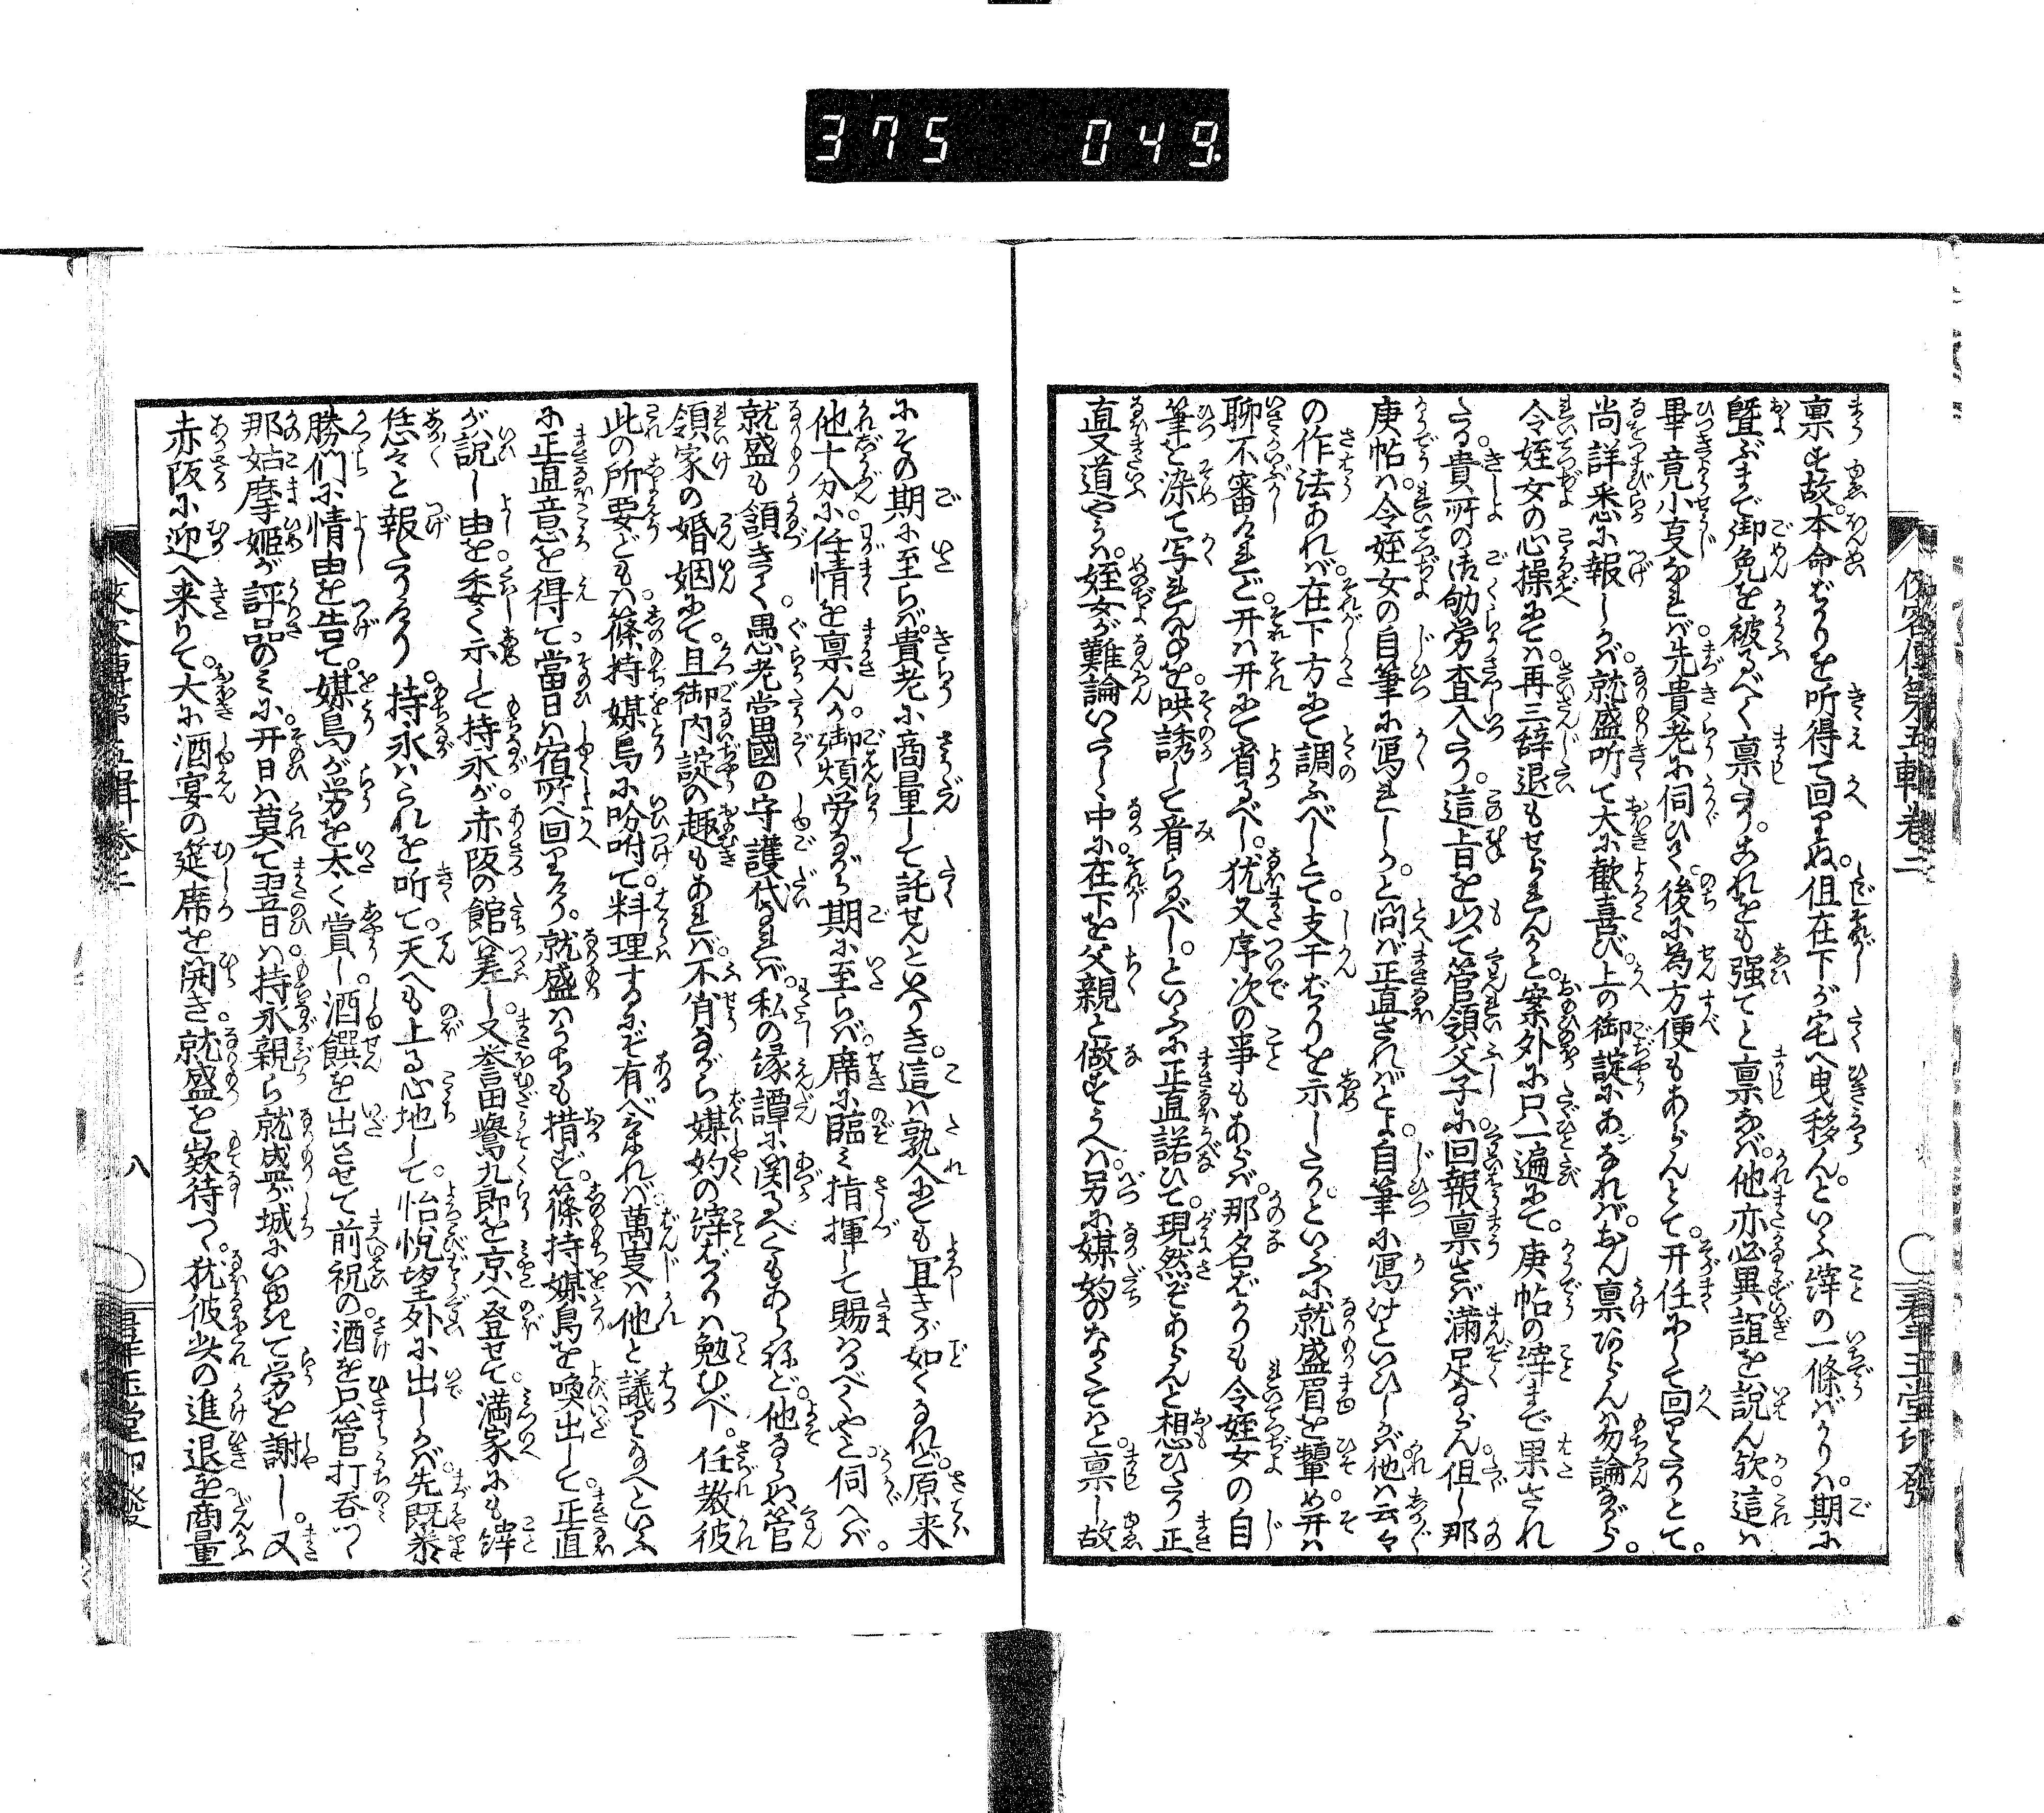 375 049
俠客傳第五輯卷二
稟す故。本命ばかりを听得て回りぬ。但在下が宅へ曳移ん。といふ縡の一條ばかりハ。期に
曁ぶまで御免を被るべく稟にき。あれをも强てと稟なバ。他亦必異誼を說ん欤。這ハ
畢竟小叓なれバ。先貴老に伺ひて後に為方便もあらんとて。开任にして回りにきとて。
尚詳悉に報しかバ。就盛听て大に歡喜び。上の御諚にあなれバ。おん稟ならんハ勿論ながら。
令姪女の心操にてハ。再三辞退もせられんかと。案外に只一遍にて。庚帖の縡まで果され
たる。貴所のおん劬労査入たり。這旨を以て管領父子に回報稟さバ滿足ならん。但し那
庚帖ハ。令姪女の自筆に寫れしか。と問バ正直さればとよ。自筆に寫けといひしかバ。他ハ云々
の作法あれバ。在下方にて調ふべしとて。支干ばかりを示したり。といふに就盛眉を顰め。开ハ
聊不審けれど。开ハ开にて省るべし。犹又序次の事もあらバ。那名ばかりも令姪女の自
筆を染て写れんことを。哄誘して看らるべし。といふに正直諾ひて。現然ぞあらんと想ひたり。正
直又道やうハ。姪女が難論いたしゝ中に。在下を父親と做すうへハ。另に媒妁のなくてハと。稟し故
春王堂印發
にその期に至らバ。貴老に商量して託せんといへりき。這ハ孰人にても宜きが如くなれど。原来
他十分に任情を稟ん。御煩労ながら期に至らバ。席に臨み指揮して賜はるべくや。と伺へバ。
就盛も領きて。愚老當國の守護代なれバ。私の縁譚に関るべくもあらねど。他ならぬ管
領家の婚姻にて。且御内諚の趣もあれバ。不肖ながら媒妁の縡ばかりハ勉むべし。任敎彼
此の所要どもハ。篠持媒鳥に吩咐て。料理するにぞ有べけれバ。萬叓ハ他と議りねへといふ
に正直意を得て。當日ハ宿所へ回りけり。就盛ハうちも措ず。篠持媒鳥を喚出して。正直
が說し由を委く示して。持永が赤阪の館へ差し。又誉田鶩九郎を京へ登せて。滿家にも縡
恁々と報たりけり。持永ハこれを听て。天へも上る心地して。怡悅望外に出しかバ。先旣泰
勝們に情由を告て。媒鳥が労を太く賞し。酒饌を出させて前祝の酒を只管打呑つゝ
那姑摩姫が評品のミに。开日ハ莫て翌日ハ。持永親ら就盛が城にい赴て労を謝し。又
赤阪に迎へ来りて。大に酒宴の筵席を開き。就盛を欵待つゝ。犹彼此の進退を商量
俠客傳第五輯卷二
八
春王堂印發